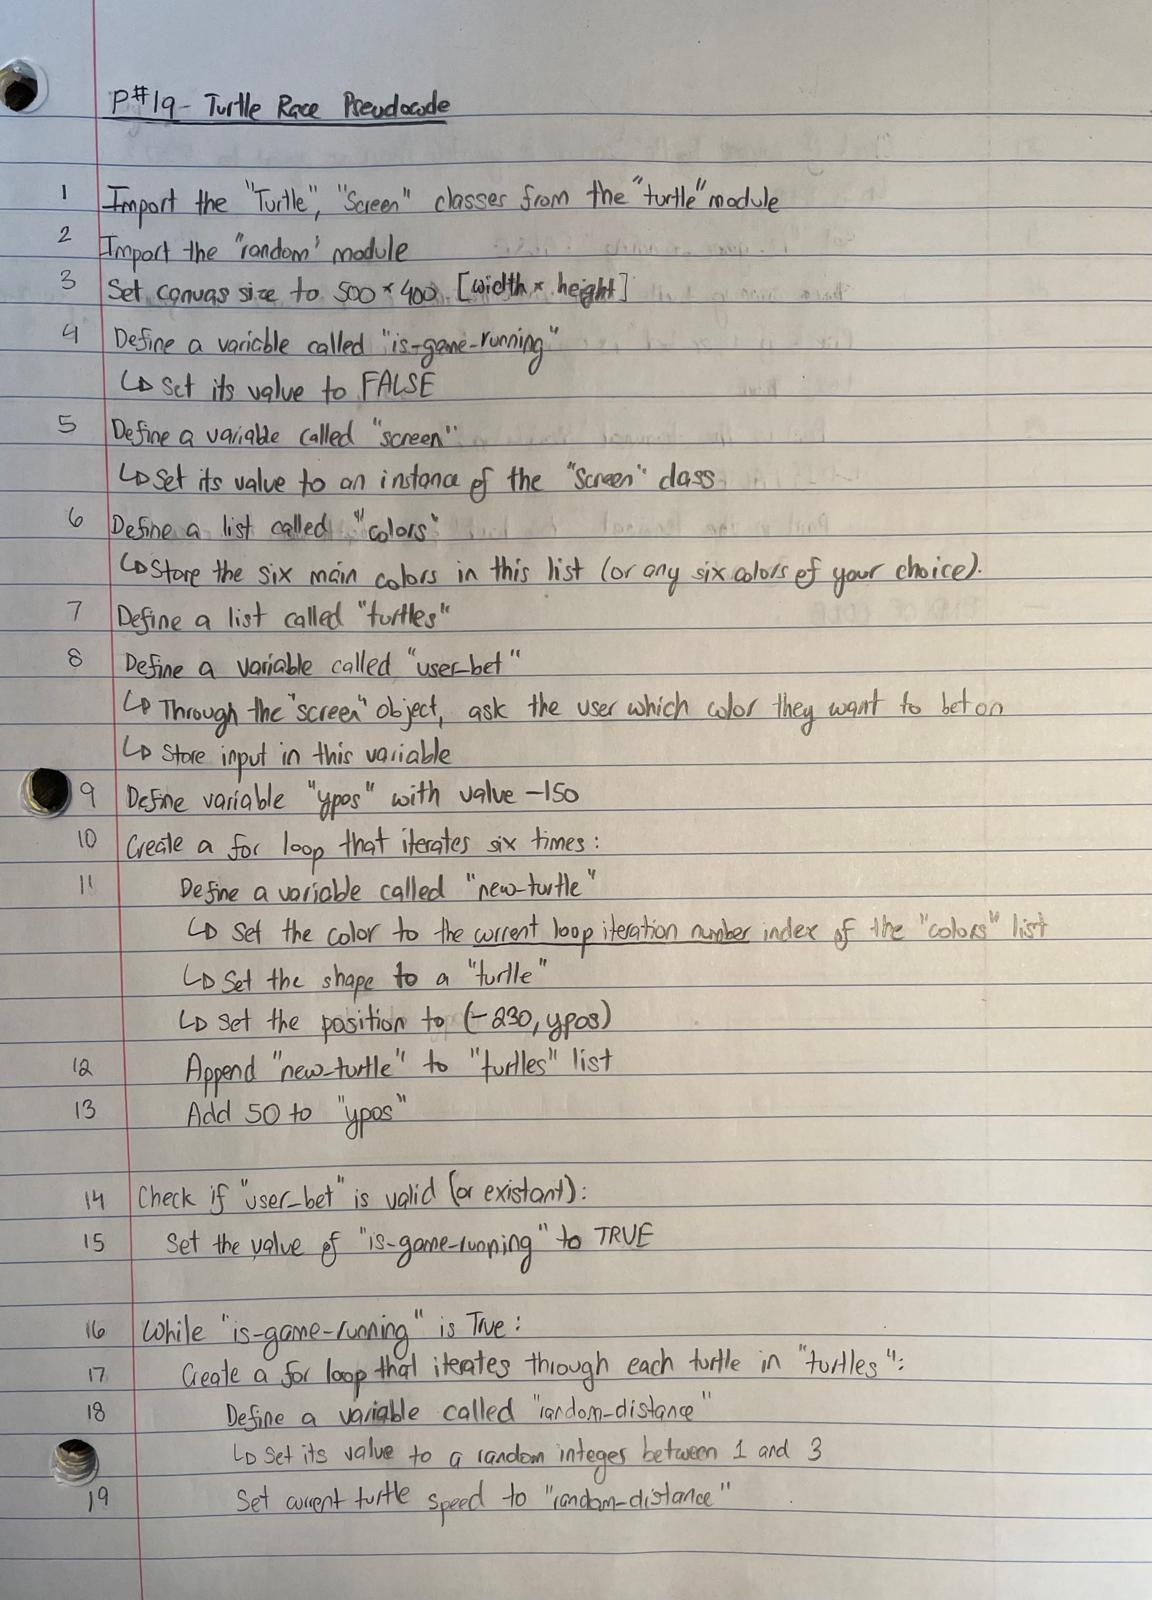 P#19- Turtle Race Pseudocode
1 Import the "Turtle", "Screen" classes from the "turtle" module
2 Import the "random' module
3 Set canvas size to 500 x 400 [width x height]
4 Define a variable called "is-game-running"
↳ Set its value to FALSE
5 Define a variable called "screen"
↳ Set its value to an instance of the "Screen" class
6 Define a list called "colors"
↳ Store the six main colors in this list (or any six colors of your choice).
7 Define a list called "turtles"
8 Define a variable called "user_bet"
↳ Through the "screen" object, ask the user which color they want to bet on
↳ Store input in this variable
9 Define variable "ypos" with value -150
10 Create a for loop that iterates six times:
11 Define a variable called "new-turtle"
↳ Set the color to the current loop iteration number index of the "colors" list
↳ Set the shape to a "turtle"
↳ Set the position to (-230, ypos)
12 Append "new-turtle" to "turtles" list
13 Add 50 to "ypos"
14 Check if "user_bet" is valid (or existant):
15 Set the value of "is-game-running" to TRUE
16 While "is-game-running" is True:
17 Create a for loop that iterates through each turtle in "turtles":
18 Define a variable called "random-distance"
↳ Set its value to a random integer between 1 and 3
19 Set current turtle speed to "random-distance"